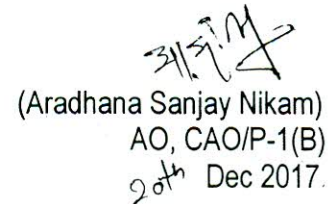 (Aradhana Sanjay Nikam)
AO, CAO/P-1(B)
20th Dec 2017.